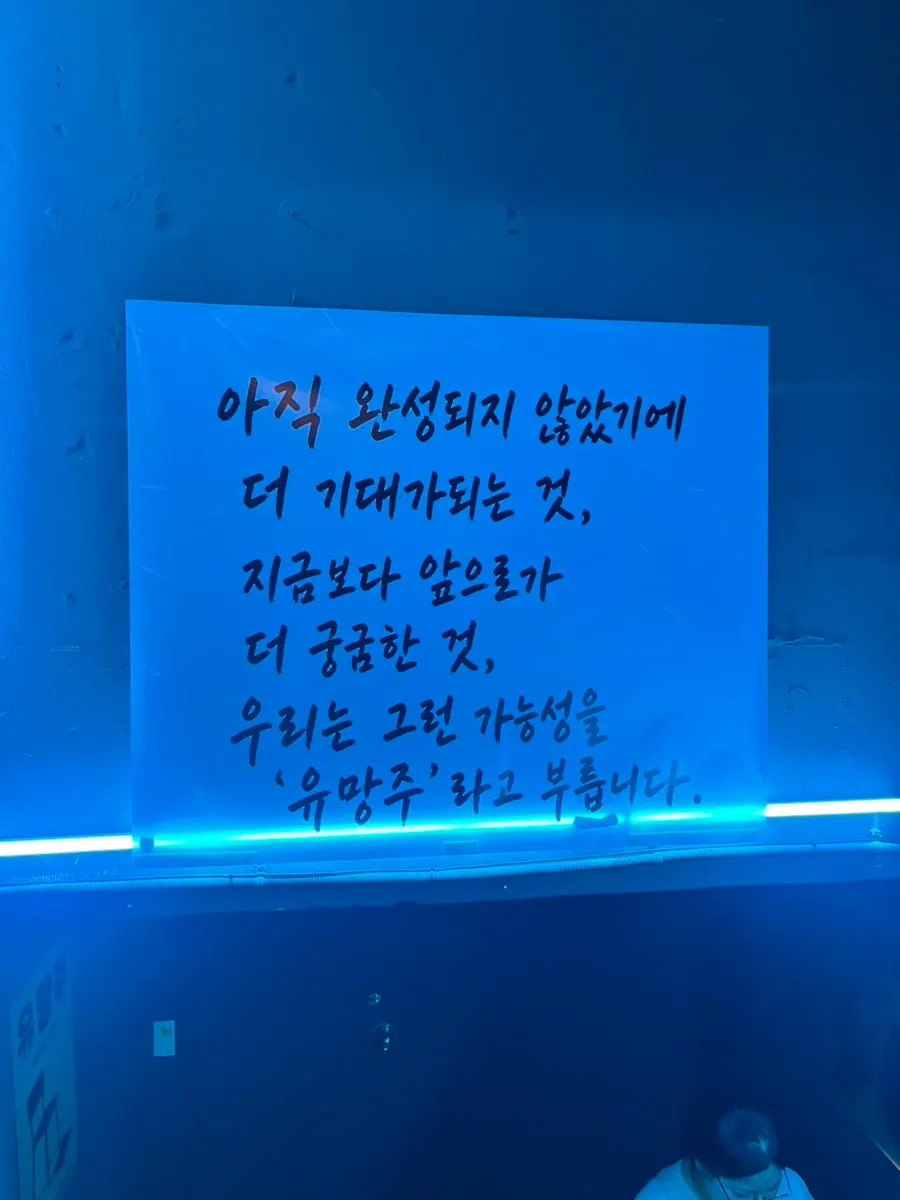 아직 완성되지 않았기에
더 기대가되는 것,
지금보다 앞으로가
더 궁굼한 것,
우리는 그런 가능성을
‘유망주’라고 부릅니다.
유망주